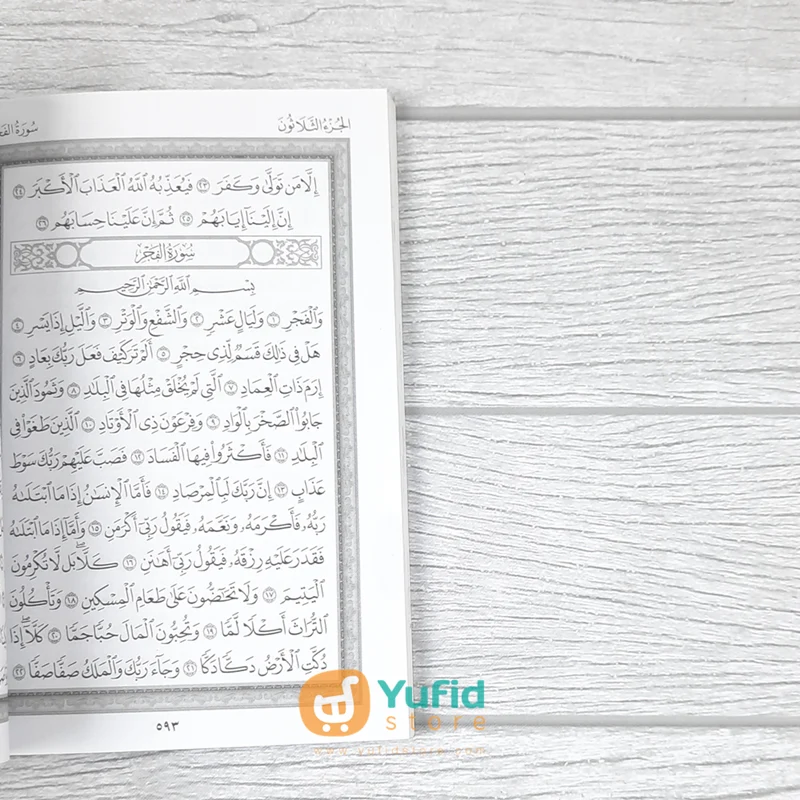 سُورَةُ الفَجْرِ الجُزْءُ الثَّلَاثُونَ
إِلَّا مَن تَوَلَّىٰ وَكَفَرَ ٢٣ فَيُعَذِّبُهُ ٱللَّهُ ٱلْعَذَابَ ٱلْأَكْبَرَ ٢٤
إِنَّ إِلَيْنَآ إِيَابَهُمْ ٢٥ ثُمَّ إِنَّ عَلَيْنَا حِسَابَهُم ٢٦
سُورَةُ الفَجْرِ
بِسْمِ ٱللَّهِ ٱلرَّحْمَٰنِ ٱلرَّحِيمِ
وَٱلْفَجْرِ ١ وَلَيَالٍ عَشْرٍ ٢ وَٱلشَّفْعِ وَٱلْوَتْرِ ٣ وَٱلَّيْلِ إِذَا يَسْرِ ٤
هَلْ فِى ذَٰلِكَ قَسَمٌ لِّذِى حِجْرٍ ٥ أَلَمْ تَرَ كَيْفَ فَعَلَ رَبُّكَ بِعَادٍ ٦
إِرَمَ ذَاتِ ٱلْعِمَادِ ٧ ٱلَّتِى لَمْ يُخْلَقْ مِثْلُهَا فِى ٱلْبِلَٰدِ ٨ وَثَمُودَ ٱلَّذِينَ
جَابُوا۟ ٱلصَّخْرَ بِٱلْوَادِ ٩ وَفِرْعَوْنَ ذِى ٱلْأَوْتَادِ ١٠ ٱلَّذِينَ طَغَوْا۟ فِى
ٱلْبِلَٰدِ ١١ فَأَكْثَرُوا۟ فِيهَا ٱلْفَسَادَ ١٢ فَصَبَّ عَلَيْهِمْ رَبُّكَ سَوْطَ
عَذَابٍ ١٣ إِنَّ رَبَّكَ لَبِٱلْمِرْصَادِ ١٤ فَأَمَّا ٱلْإِنسَٰنُ إِذَا مَا ٱبْتَلَىٰهُ
رَبُّهُۥ فَأَكْرَمَهُۥ وَنَعَّمَهُۥ فَيَقُولُ رَبِّىٓ أَكْرَمَنِ ١٥ وَأَمَّآ إِذَا مَا ٱبْتَلَىٰهُ
فَقَدَرَ عَلَيْهِ رِزْقَهُۥ فَيَقُولُ رَبِّىٓ أَهَٰنَنِ ١٦ كَلَّا ۖ بَل لَّا تُكْرِمُونَ
ٱلْيَتِيمَ ١٧ وَلَا تَحَٰٓضُّونَ عَلَىٰ طَعَامِ ٱلْمِسْكِينِ ١٨ وَتَأْكُلُونَ
ٱلتُّرَاثَ أَكْلًا لَّمًّا ١٩ وَتُحِبُّونَ ٱلْمَالَ حُبًّا جَمًّا ٢٠ كَلَّآ ۖ إِذَا
دُكَّتِ ٱلْأَرْضُ دَكًّا دَكًّا ٢١ وَجَآءَ رَبُّكَ وَٱلْمَلَكُ صَفًّا صَفًّا ٢٢
٥٩٣
Yufid
store
www.yufidstore.com